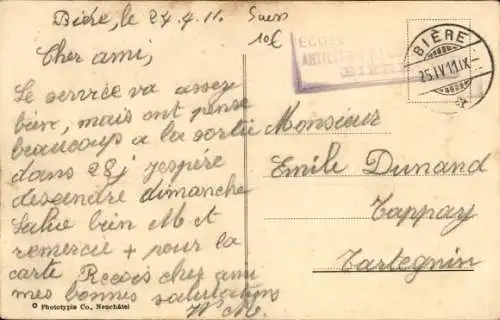 Bière, le 24.4.11.
Suess
10€
Cher ami,
Le service va assez
bien, mais ont pense
beaucoup a la sortie
dans 28 j j'espére
desendre dimanche
Salue bien M et
remercie + pour la
carte Recois cher ami
mes bonnes salutations
W M.
Phototypie Co., Neuchâtel
ECOLE
ARTILLERIE
BIÈRE
BIÈRE
25.IV.11.IX
Monsieur
Emile Dunand
Tappay
Tartegnin